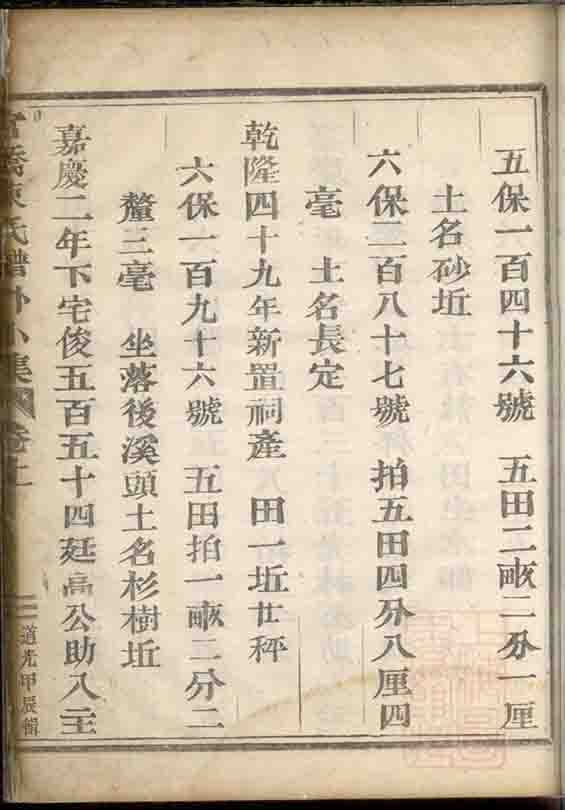 五保一百四十六號　五田二畝二分一厘
土名砂坵
六保二百八十七號　拍五田四分八厘四
毫　土名長定
乾隆四十九年新置祠產　田一坵廿秤
六保一百九十六號　五田拍一畝二分二
釐三毫　坐落後溪頭土名杉樹坵
嘉慶二年下宅俊五百五十四廷高公助入主
氏譜外小集
道光甲辰輯